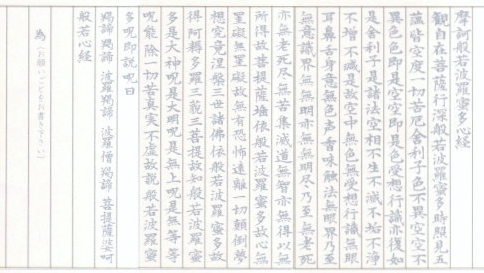 摩訶般若波羅蜜多心経
観自在菩薩行深般若波羅蜜多時照見五
蘊皆空度一切苦厄舎利子色不異空空不
異色色即是空空即是色受想行識亦復如
是舎利子是諸法空相不生不滅不垢不浄
不増不減是故空中無色無受想行識無眼
耳鼻舌身意無色声香味触法無眼界乃至
無意識界無無明亦無無明尽乃至無老死
亦無老死尽無苦集滅道無智亦無得以無
所得故菩提薩埵依般若波羅蜜多故心無
罣礙無罣礙故無有恐怖遠離一切顛倒夢
想究竟涅槃三世諸佛依般若波羅蜜多故
得阿耨多羅三藐三菩提故知般若波羅蜜
多是大神呪是大明呪是無上呪是無等等
呪能除一切苦真実不虚故説般若波羅蜜
多呪即説呪曰
羯諦 羯諦 波羅羯諦 波羅僧羯諦 菩提薩婆呵
般若心経
為(お願いごとをお書き下さい)